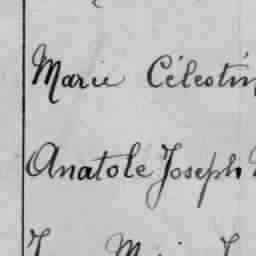 Marie Célestin
Anatole Joseph